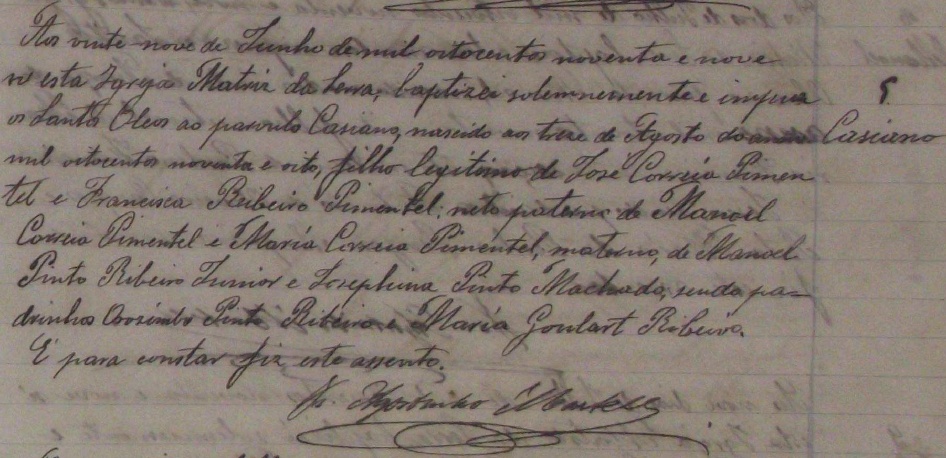 Aos vinte nove de Junho de mil oitocentos noventa e nove
n'esta Igreja Matriz da Serra, baptizei solemnemente e impuz
os Santos Oleos ao parvulo Casiano, nascido aos treze de Agosto do
Casiano
mil oitocentos noventa e oito, filho legitimo de José Correia Pimen
tel e Francisca Ribeiro Pimentel; neto paterno de Manoel
Correia Pimentel e María Correia Pimentel; materno, de Manoel
Pinto Ribeiro Junior e Josephina Pinto Machado, sendo pa-
drinhos Pinto Ribeiro e María Goulart Ribeiro.
E para constar fiz este assento.